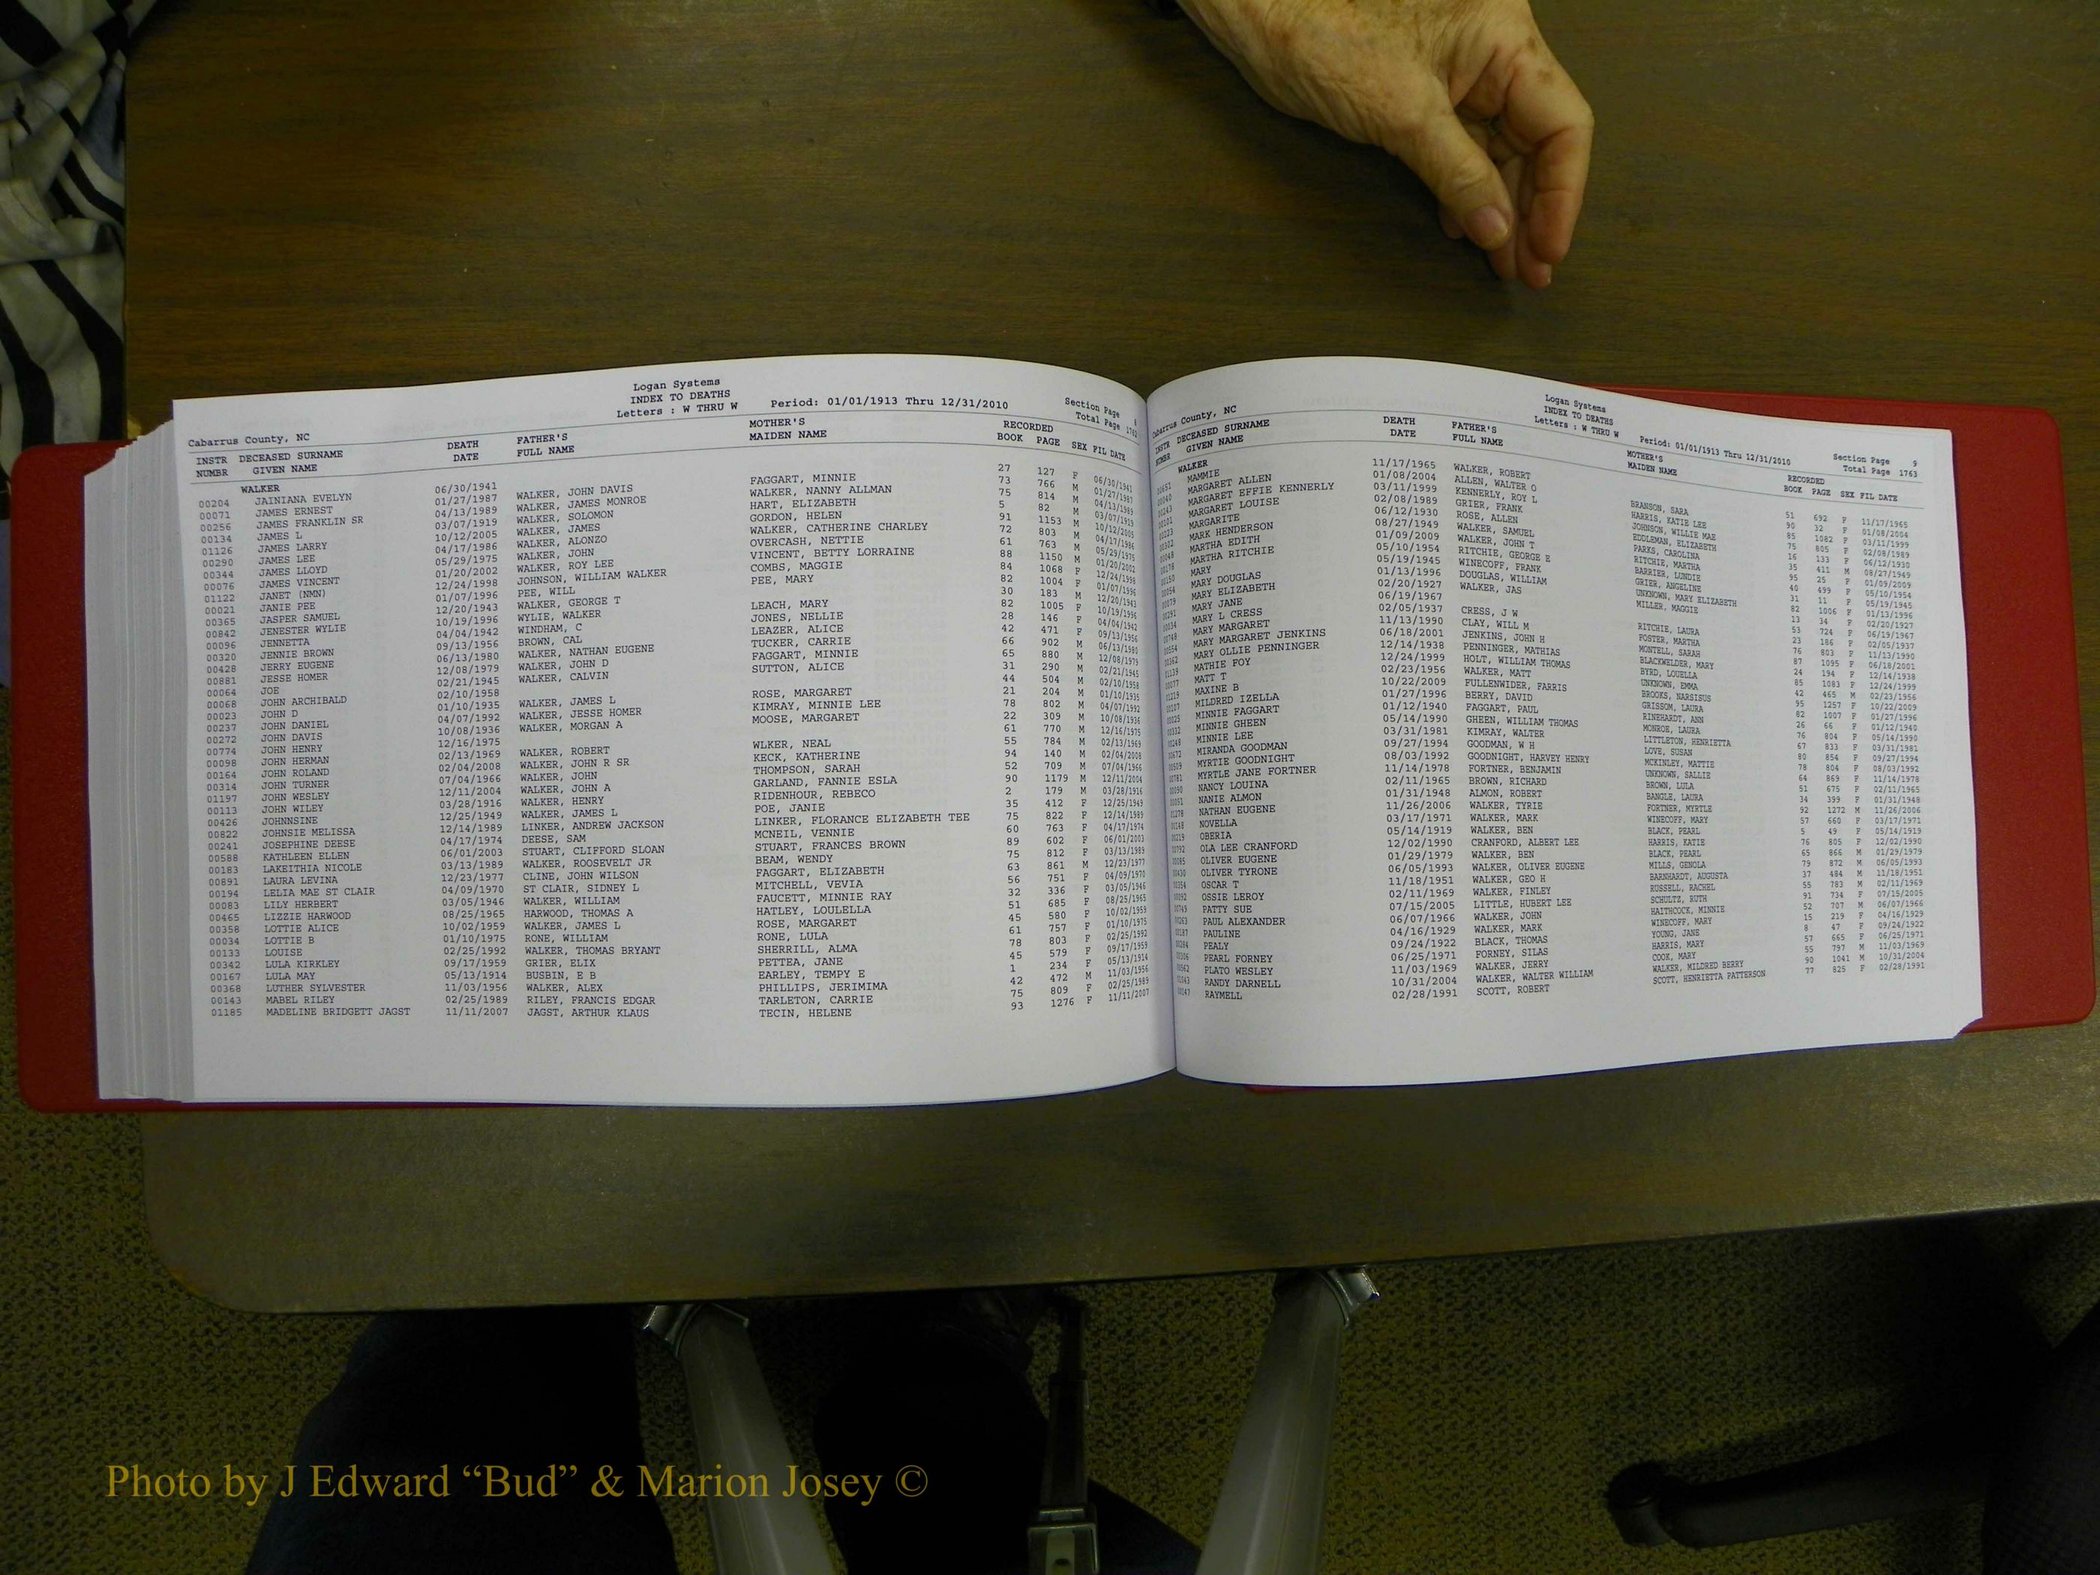 Logan Systems
INDEX TO DEATHS
Letters : W THRU W Period: 01/01/1913 Thru 12/31/2010
Section Page 8
Total Page 1762
Cabarrus County, NC
INSTR DECEASED SURNAME DEATH FATHER'S MOTHER'S RECORDED
NUMBR GIVEN NAME DATE FULL NAME MAIDEN NAME BOOK PAGE SEX FIL DATE
WALKER
00204 JAINIANA EVELYN 06/30/1941 27 127 F 06/30/1941
00071 JAMES ERNEST 01/27/1987 WALKER, JOHN DAVIS FAGGART, MINNIE 73 766 M 01/27/1987
00256 JAMES FRANKLIN SR 04/13/1989 WALKER, JAMES MONROE WALKER, NANNY ALLMAN 75 814 M 04/13/1989
00134 JAMES L 03/07/1919 WALKER, SOLOMON HART, ELIZABETH 5 82 M 03/07/1919
01126 JAMES LARRY 10/12/2005 WALKER, JAMES GORDON, HELEN 91 1153 M 10/12/2005
00290 JAMES LEE 04/17/1986 WALKER, ALONZO WALKER, CATHERINE CHARLEY 72 803 M 04/17/1986
00344 JAMES LLOYD 05/29/1975 WALKER, JOHN OVERCASH, NETTIE 61 763 M 05/29/1975
00076 JAMES VINCENT 01/20/2002 WALKER, ROY LEE VINCENT, BETTY LORRAINE 88 1150 M 01/20/2002
01122 JANET (NMN) 12/24/1998 JOHNSON, WILLIAM WALKER COMBS, MAGGIE 84 1068 F 12/24/1998
00021 JANIE PEE 01/07/1996 PEE, WILL PEE, MARY 82 1004 F 01/07/1996
00365 JASPER SAMUEL 12/20/1943 WALKER, GEORGE T 30 183 M 12/20/1943
00842 JENESTER WYLIE 10/19/1996 WYLIE, WALKER LEACH, MARY 82 1005 F 10/19/1996
00096 JENNETTA 04/04/1942 WINDHAM, C JONES, NELLIE 28 146 F 04/04/1942
00320 JENNIE BROWN 09/13/1956 BROWN, CAL LEAZER, ALICE 42 471 F 09/13/1956
00428 JERRY EUGENE 06/13/1980 WALKER, NATHAN EUGENE TUCKER, CARRIE 66 902 M 06/13/1980
00881 JESSE HOMER 12/08/1979 WALKER, JOHN D FAGGART, MINNIE 65 880 M 12/08/1979
00064 JOE 02/21/1945 WALKER, CALVIN SUTTON, ALICE 31 290 M 02/21/1945
00068 JOHN ARCHIBALD 02/10/1958 44 504 M 02/10/1958
00023 JOHN D 01/10/1935 WALKER, JAMES L ROSE, MARGARET 21 204 M 01/10/1935
00237 JOHN DANIEL 04/07/1992 WALKER, JESSE HOMER KIMRAY, MINNIE LEE 78 802 M 04/07/1992
00272 JOHN DAVIS 10/08/1936 WALKER, MORGAN A MOOSE, MARGARET 22 309 M 10/08/1936
00774 JOHN HENRY 12/16/1975 61 770 M 12/16/1975
00098 JOHN HERMAN 02/13/1969 WALKER, ROBERT WLKER, NEAL 55 784 M 02/13/1969
00164 JOHN ROLAND 02/04/2008 WALKER, JOHN R SR KECK, KATHERINE 94 140 M 02/04/2008
00314 JOHN TURNER 07/04/1966 WALKER, JOHN THOMPSON, SARAH 52 709 M 07/04/1966
01197 JOHN WESLEY 12/11/2004 WALKER, JOHN A GARLAND, FANNIE ESLA 90 1179 M 12/11/2004
00113 JOHN WILEY 03/28/1916 WALKER, HENRY RIDENHOUR, REBECO 2 179 M 03/28/1916
00426 JOHNNSINE 12/25/1949 WALKER, JAMES L POE, JANIE 35 412 F 12/25/1949
00822 JOHNSIE MELISSA 12/14/1989 LINKER, ANDREW JACKSON LINKER, FLORANCE ELIZABETH TEE 75 822 F 12/14/1989
00241 JOSEPHINE DEESE 04/17/1974 DEESE, SAM MCNEIL, VENNIE 60 763 F 04/17/1974
00588 KATHLEEN ELLEN 06/01/2003 STUART, CLIFFORD SLOAN STUART, FRANCES BROWN 89 602 F 06/01/2003
00183 LAKEITHIA NICOLE 03/13/1989 WALKER, ROOSEVELT JR BEAM, WENDY 75 812 F 03/13/1989
00891 LAURA LEVINA 12/23/1977 CLINE, JOHN WILSON FAGGART, ELIZABETH 63 861 M 12/23/1977
00194 LELIA MAE ST CLAIR 04/09/1970 ST CLAIR, SIDNEY L MITCHELL, VEVIA 56 751 F 04/09/1970
00083 LILY HERBERT 03/05/1946 WALKER, WILLIAM FAUCETT, MINNIE RAY 32 336 F 03/05/1946
00465 LIZZIE HARWOOD 08/25/1965 HARWOOD, THOMAS A HATLEY, LOULELLA 51 685 F 08/25/1965
00358 LOTTIE ALICE 10/02/1959 WALKER, JAMES L ROSE, MARGARET 45 580 F 10/02/1959
00034 LOTTIE B 01/10/1975 RONE, WILLIAM RONE, LULA 61 757 F 01/10/1975
00133 LOUISE 02/25/1992 WALKER, THOMAS BRYANT SHERRILL, ALMA 78 803 F 02/25/1992
00342 LULA KIRKLEY 09/17/1959 GRIER, ELIX PETTEA, JANE 45 579 F 09/17/1959
00167 LULA MAY 05/13/1914 BUSBIN, E B EARLEY, TEMPY E 1 234 F 05/13/1914
00368 LUTHER SYLVESTER 11/03/1956 WALKER, ALEX PHILLIPS, JERIMIMA 42 472 M 11/03/1956
00143 MABEL RILEY 02/25/1989 RILEY, FRANCIS EDGAR TARLETON, CARRIE 75 809 F 02/25/1989
01185 MADELINE BRIDGETT JAGST 11/11/2007 JAGST, ARTHUR KLAUS TECIN, HELENE 93 1276 F 11/11/2007
Logan Systems
INDEX TO DEATHS
Letters : W THRU W Period: 01/01/1913 Thru 12/31/2010
Section Page 9
Total Page 1763
Cabarrus County, NC
INSTR DECEASED SURNAME DEATH FATHER'S MOTHER'S RECORDED
NUMBR GIVEN NAME DATE FULL NAME MAIDEN NAME BOOK PAGE SEX FIL DATE
WALKER
MAMMIE 11/17/1965 WALKER, ROBERT 51 692 F 11/17/1965
MARGARET ALLEN 01/08/2004 ALLEN, WALTER O BRANSON, SARA 90 32 F 01/08/2004
MARGARET EFFIE KENNERLY 03/11/1999 KENNERLY, ROY L HARRIS, KATIE LEE 85 1082 F 03/11/1999
MARGARET LOUISE 02/08/1989 GRIER, FRANK JOHNSON, WILLIE MAE 75 805 F 02/08/1989
MARGARITE 06/12/1930 ROSE, ALLEN EDDLEMAN, ELIZABETH 16 133 F 06/12/1930
MARK HENDERSON 08/27/1949 WALKER, SAMUEL PARKS, CAROLINA 35 411 M 08/27/1949
MARTHA EDITH 01/09/2009 WALKER, JOHN T RITCHIE, MARTHA 95 25 F 01/09/2009
MARTHA RITCHIE 05/10/1954 RITCHIE, GEORGE E BARRIER, LUNDIE 40 499 F 05/10/1954
MARY 05/19/1945 WINECOFF, FRANK GRIER, ANGELINE 31 11 F 05/19/1945
MARY DOUGLAS 01/13/1996 DOUGLAS, WILLIAM UNKNOWN, MARY ELIZABETH 82 1006 F 01/13/1996
MARY ELIZABETH 02/20/1927 WALKER, JAS MILLER, MAGGIE 13 34 F 02/20/1927
MARY JANE 06/19/1967 53 724 F 06/19/1967
MARY L CRESS 02/05/1937 CRESS, J W RITCHIE, LAURA 23 186 F 02/05/1937
MARY MARGARET 11/13/1990 CLAY, WILL M FOSTER, MARTHA 76 803 F 11/13/1990
MARY MARGARET JENKINS 06/18/2001 JENKINS, JOHN H MONTELL, SARAH 87 1095 F 06/18/2001
MARY OLLIE PENNINGER 12/14/1938 PENNINGER, MATHIAS BLACKWELDER, MARY 24 194 F 12/14/1938
MATHIE FOY 12/24/1999 HOLT, WILLIAM THOMAS BYRD, LOUELLA 85 1083 F 12/24/1999
MATT T 02/23/1956 WALKER, MATT UNKNOWN, EMMA 42 465 M 02/23/1956
MAXINE B 10/22/2009 FULLENWIDER, FARRIS BROOKS, NARSISUS 95 1257 F 10/22/2009
MILDRED IZELLA 01/27/1996 BERRY, DAVID GRISSOM, LAURA 82 1007 F 01/27/1996
MINNIE FAGGART 01/12/1940 FAGGART, PAUL RINEHARDT, ANN 26 66 F 01/12/1940
MINNIE GHEEN 05/14/1990 GHEEN, WILLIAM THOMAS MONROE, LAURA 76 804 F 05/14/1990
MINNIE LEE 03/31/1981 KIMRAY, WALTER LITTLETON, HENRIETTA 67 833 F 03/31/1981
MIRANDA GOODMAN 09/27/1994 GOODMAN, W H LOVE, SUSAN 80 854 F 09/27/1994
MYRTIE GOODNIGHT 08/03/1992 GOODNIGHT, HARVEY HENRY MCKINLEY, MATTIE 78 804 F 08/03/1992
MYRTLE JANE FORTNER 11/14/1978 FORTNER, BENJAMIN UNKNOWN, SALLIE 64 869 F 11/14/1978
NANCY LOUINA 02/11/1965 BROWN, RICHARD BROWN, LULA 51 675 F 02/11/1965
NANIE ALMON 01/31/1948 ALMON, ROBERT BANGLE, LAURA 34 399 F 01/31/1948
NATHAN EUGENE 11/26/2006 WALKER, TYRIE FORTNER, MYRTLE 92 1272 M 11/26/2006
NOVELLA 03/17/1971 WALKER, MARK WINECOFF, MARY 57 660 F 03/17/1971
OBERIA 05/14/1919 WALKER, BEN BLACK, PEARL 5 49 F 05/14/1919
OLA LEE CRANFORD 12/02/1990 CRANFORD, ALBERT LEE HARRIS, KATIE 76 805 F 12/02/1990
OLIVER EUGENE 01/29/1979 WALKER, BEN BLACK, PEARL 65 866 M 01/29/1979
OLIVER TYRONE 06/05/1993 WALKER, OLIVER EUGENE MILLS, GENOLA 79 872 M 06/05/1993
OSCAR T 11/18/1951 WALKER, GEO H BARNHARDT, AUGUSTA 37 484 M 11/18/1951
OSSIE LEROY 02/11/1969 WALKER, FINLEY RUSSELL, RACHEL 55 783 M 02/11/1969
PATTY SUE 07/15/2005 LITTLE, HUBERT LEE SCHULTZ, RUTH 91 734 F 07/15/2005
PAUL ALEXANDER 06/07/1966 WALKER, JOHN HAITHCOCK, MINNIE 52 707 M 06/07/1966
PAULINE 04/16/1929 WALKER, MARK WINECOFF, MARY 15 219 F 04/16/1929
PEALY 09/24/1922 BLACK, THOMAS YOUNG, JANE 8 47 F 09/24/1922
PEARL FORNEY 06/25/1971 FORNEY, SILAS HARRIS, MARY 57 665 F 06/25/1971
PLATO WESLEY 11/03/1969 WALKER, JERRY COOK, MARY 55 797 M 11/03/1969
RANDY DARNELL 10/31/2004 WALKER, WALTER WILLIAM WALKER, MILDRED BERRY 90 1041 M 10/31/2004
RAYMELL 02/28/1991 SCOTT, ROBERT SCOTT, HENRIETTA PATTERSON 77 825 F 02/28/1991
Photo by J Edward “Bud” & Marion Josey ©